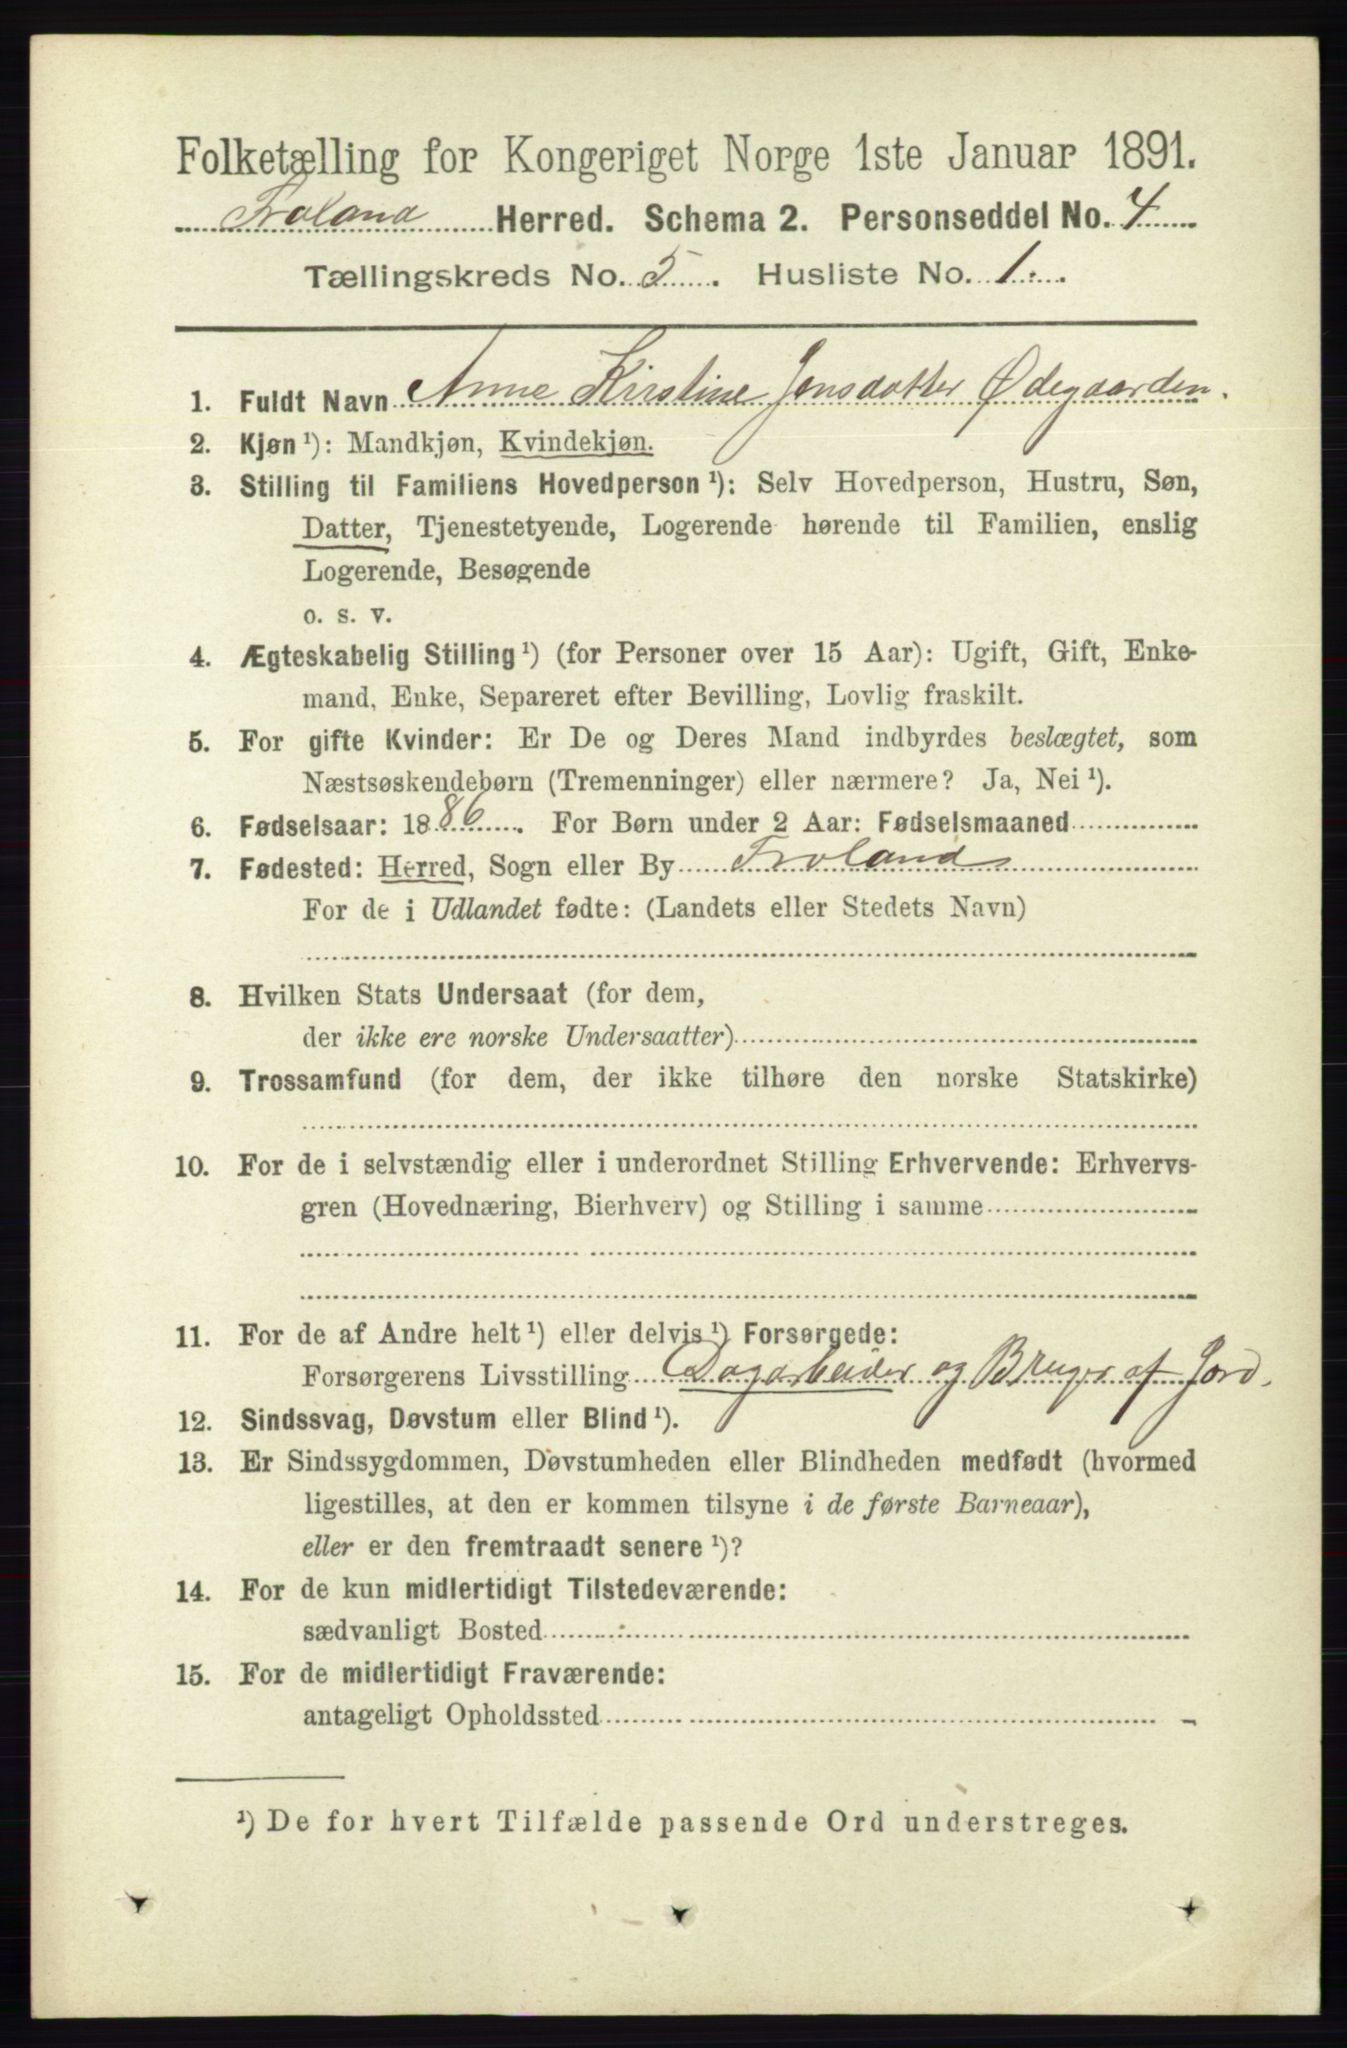 Folketælling for Kongeriget Norge 1ste Januar 1891.
Froland Herred. Schema 2. Personseddel No. 4
Tællingskreds No. 5. Husliste No. 1.
1. Fuldt Navn Anne Kirstine Jensdatter Ødegaarden.
2. Kjøn ¹): Mandkjøn, Kvindekjøn.
3. Stilling til Familiens Hovedperson ¹): Selv Hovedperson, Hustru, Søn,
Datter, Tjenestetyende, Logerende hørende til Familien, enslig
Logerende, Besøgende
o. s. v.
4. Ægteskabelig Stilling ¹) (for Personer over 15 Aar): Ugift, Gift, Enke-
mand, Enke, Separeret efter Bevilling, Lovlig fraskilt.
5. For gifte Kvinder: Er De og Deres Mand indbyrdes beslægtet, som
Næstsøskendebørn (Tremenninger) eller nærmere? Ja, Nei ¹).
6. Fødselsaar: 1886. For Børn under 2 Aar: Fødselsmaaned
7. Fødested: Herred, Sogn eller By Frolands
For de i Udlandet fødte: (Landets eller Stedets Navn)
8. Hvilken Stats Undersaat (for dem,
der ikke ere norske Undersaatter)
9. Trossamfund (for dem, der ikke tilhøre den norske Statskirke)
10. For de i selvstændig eller i underordnet Stilling Erhvervende: Erhvervs-
gren (Hovednæring, Bierhverv) og Stilling i samme
11. For de af Andre helt ¹) eller delvis ¹) Forsørgede:
Forsørgerens Livsstilling Dagarbeider og Bruger af Jord.
12. Sindssvag, Døvstum eller Blind ¹).
13. Er Sindssygdommen, Døvstumheden eller Blindheden medfødt (hvormed
ligestilles, at den er kommen tilsyne i de første Barneaar),
eller er den fremtraadt senere ¹)?
14. For de kun midlertidigt Tilstedeværende:
sædvanligt Bosted
15. For de midlertidigt Fraværende:
antageligt Opholdssted
¹) De for hvert Tilfælde passende Ord understreges.